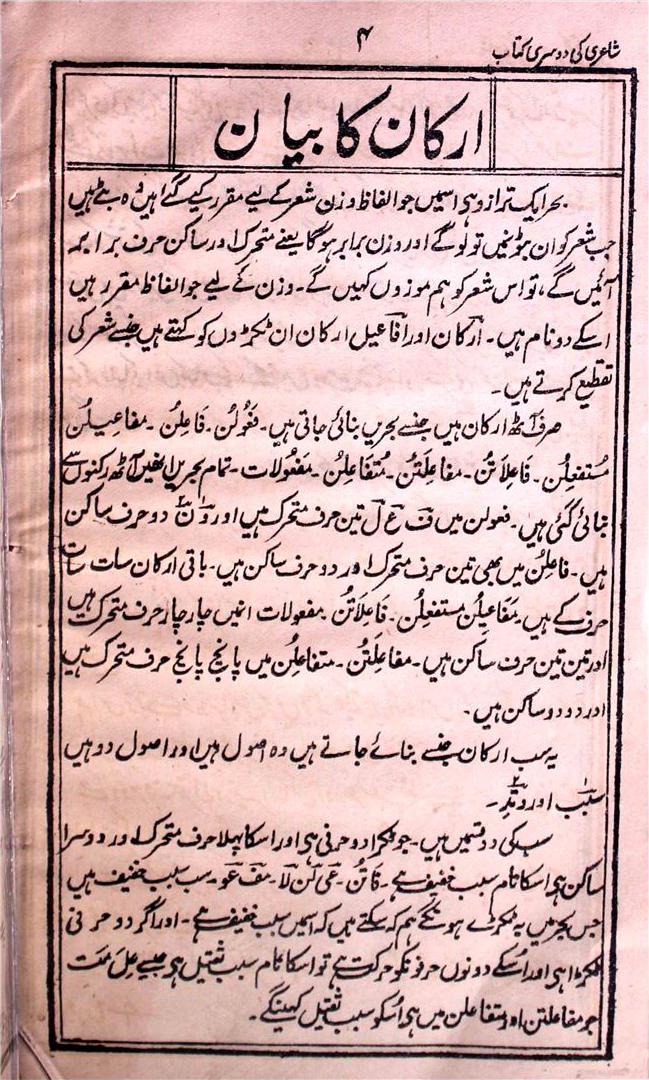 شاعری کی دوسری کتاب
۴
ارکان کا بیان
بحر ایک ترازو ہی اسمیں جو الفاظ وزن شعر کے لیے مقرر کیے گئے ہیں وہ بٹے ہیں
جب شعر کو ان بٹوں میں تولو گے اور وزن برابر ہوگا یعنے متحرک اور ساکن حرف برابر
آئیں گے، تو اس شعر کو ہم موزوں کہیں گے۔ وزن کے لیے جو الفاظ مقرر ہیں
اسکے دو نام ہیں۔ ارکان اور افاعیل ارکان ان ٹکڑوں کو کہتے ہیں جنسے شعر کی
تقطیع کرتے ہیں۔
صرف آٹھ ارکان ہیں جنسے بحریں بنائی جاتی ہیں۔ فعولن۔ فاعلن۔ مفاعیلن
مُستفعلن۔ فاعلاتن۔ مفاعلتن۔ مُتفاعلن۔ مفعولات۔ تمام بحریں انھیں آٹھ رکنوں سے
بنائی گئی ہیں۔ فعولن میں ف ع ل تین حرف متحرک ہیں اور و ن دو حرف ساکن
ہیں۔ فاعلن میں بھی تین حرف متحرک اور دو حرف ساکن ہیں۔ باقی ارکان سات سات
حرف کے ہیں۔ مفاعیلن مستفعلن۔ فاعلاتن۔ مفعولات انیں چار چار حرف متحرک ہیں
اور تین تین حرف ساکن ہیں۔ مفاعلتن۔ متفاعلن میں پانچ پانچ حرف متحرک ہیں
اور دو دو ساکن ہیں۔
یہ سب ارکان جنسے بنائے جاتے ہیں وہ اصول ہیں اور اصول دو ہیں
سبب اور وتد۔
سبب کی دو قسمیں ہیں۔ جو ٹکڑا دو حرفی ہی اور اسکا پہلا حرف متحرک اور دوسرا
ساکن ہی اسکا نام سبب خفیف ہے۔ فا تن۔ عی لن لا۔ مف عو۔ سب سبب خفیف ہیں
جس بحر میں یہ ٹکڑے ہونگے ہم کہہ سکتے ہیں کہ اسمیں سبب خفیف ہے۔ اور اگر دو حرفی
ٹکڑا ہی اور اُسکے دونوں حرفونکو حرکت ہے تو اسکا نام سبب ثقیل ہی جیسے عل مت
جو مفاعلتن اور متفاعلن میں ہی اُسکو سبب ثقیل کہینگے۔